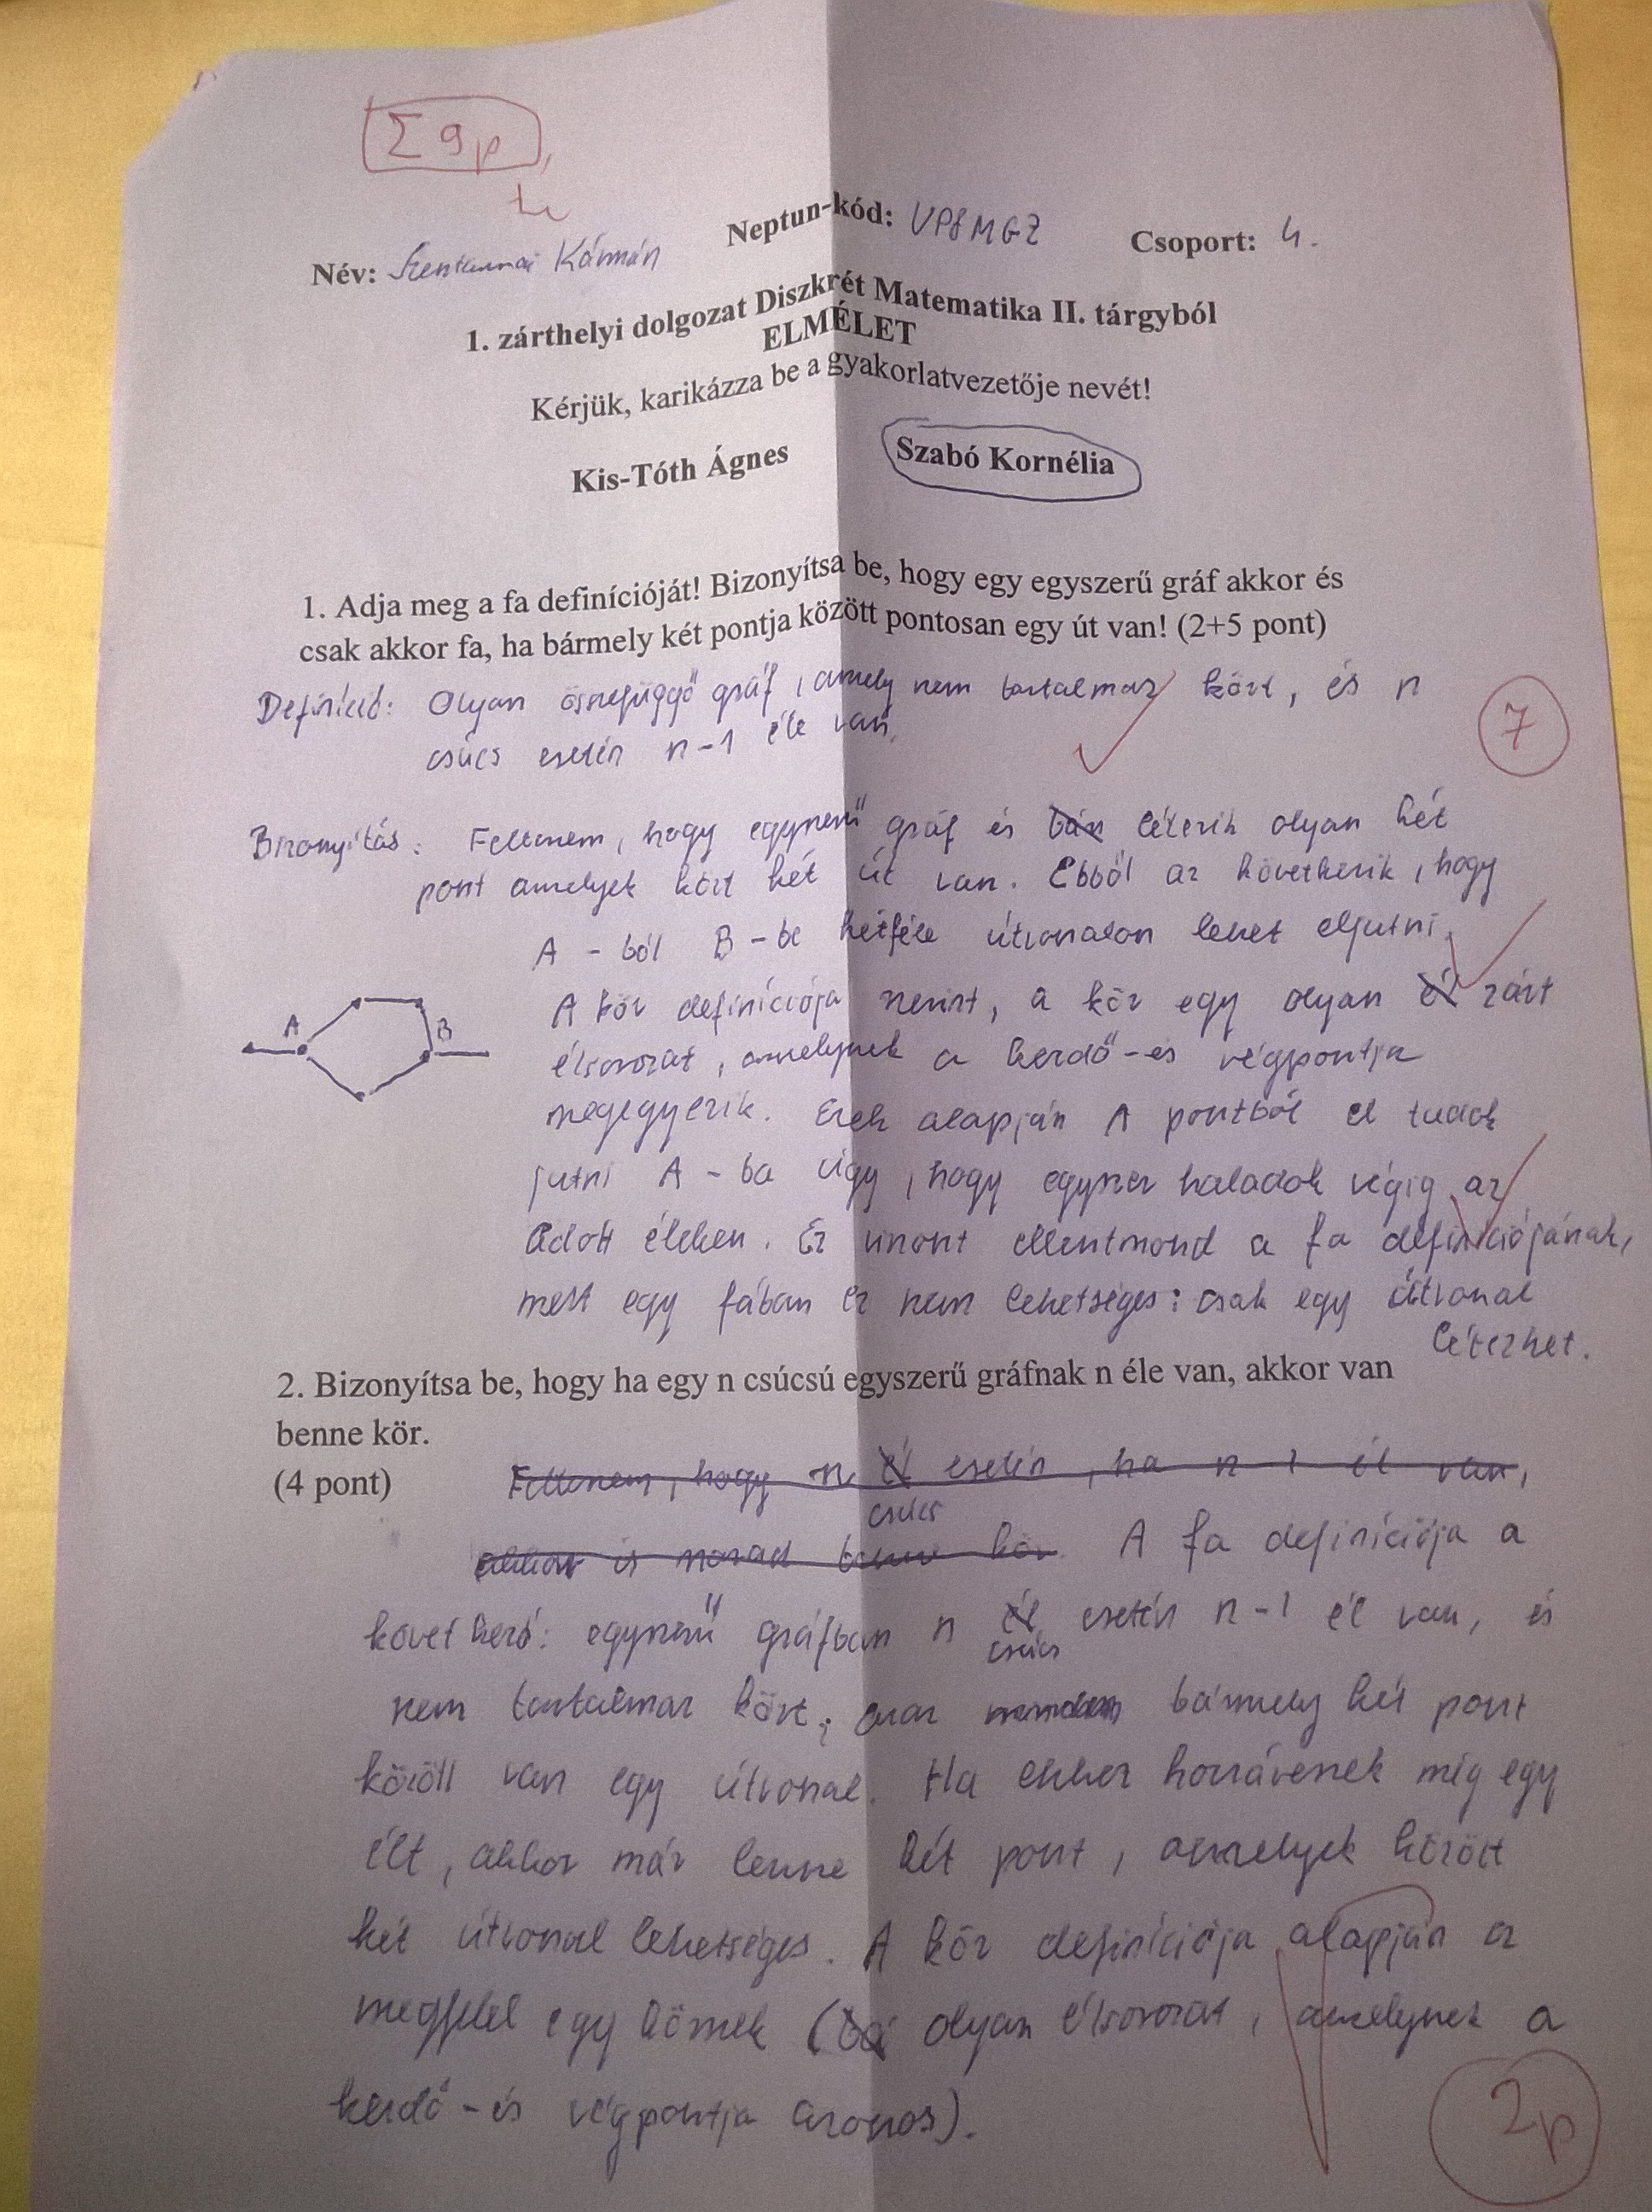 Σ 9p
Név: Kálmán Neptun-kód: VP8MGZ Csoport: 4.
1. zárthelyi dolgozat Diszkrét Matematika II. tárgyból
ELMÉLET
Kérjük, karikázza be a gyakorlatvezetője nevét!
Kis-Tóth Ágnes Szabó Kornélia
1. Adja meg a fa definícióját! Bizonyítsa be, hogy egy egyszerű gráf akkor és
csak akkor fa, ha bármely két pontja között pontosan egy út van! (2+5 pont)
Definíció: Olyan összefüggő gráf, amely nem tartalmaz kört, és n
csúcs esetén n-1 éle van.
7
Bizonyítás: Felteszem, hogy egyszerű gráf és létezik olyan két
pont amelyek közt két út van. Ebből az következik, hogy
A-ból B-be kétféle útvonalon lehet eljutni.
A kör definíciója szerint, a kör egy olyan zárt
A B
élsorozat, amelynek a kezdő-és végpontja
megegyezik. Ezek alapján A pontból el tudok
jutni A-ba úgy, hogy egyszer haladok végig az
adott éleken. Ez viszont ellentmond a fa definíciójának,
mert egy fában ez nem lehetséges: csak egy útvonal
létezhet.
2. Bizonyítsa be, hogy ha egy n csúcsú egyszerű gráfnak n éle van, akkor van
benne kör.
(4 pont) Felteszem, hogy n él esetén, ha n-1 él van,
csúcs
akkor is marad benne kör. A fa definíciója a
következő: egyszerű gráfban n él esetén n-1 él van, és
csúcs
nem tartalmaz kört, azaz bármely két pont
között van egy útvonal. Ha ehhez hozzáveszek még egy
élt, akkor már lenne két pont, amelyek között
két útvonal lehetséges. A kör definíciója alapján ez
megfelel egy körnek (olyan élsorozat, amelynek a
kezdő-és végpontja azonos).
2p